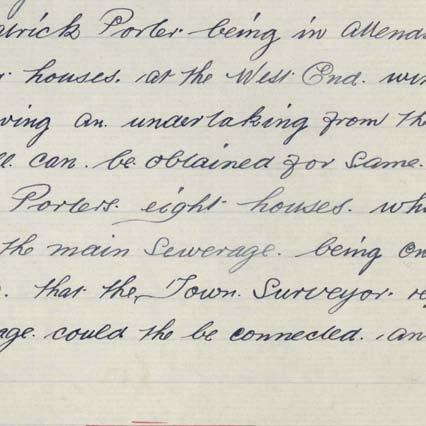 atrick Porter being in Attend
houses. at the West End. wi
ving an. undertaking from the
can. be obtained for Same.
Porters. eight houses. wh
the main Sewerage. being on
that the, Town. Surveyor. re
age. could the be connected. an